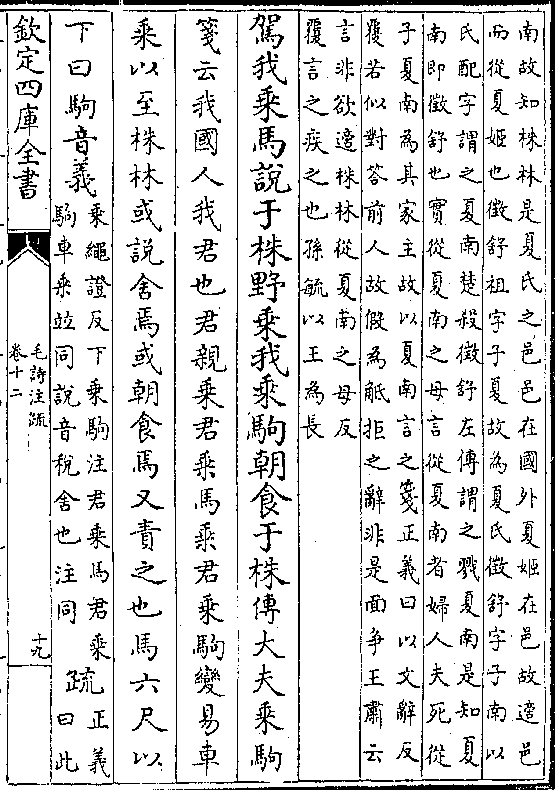 南故知株林是夏氏之邑邑在國外夏姬在邑故適邑
而從夏姬也徵舒祖字子夏故為夏氏徵舒字子南以
氏配字謂之夏南楚殺徵舒左傳謂之戮夏南是知夏
南即徵舒也實從夏南之母言從夏南者婦人夫死從
子夏南為其家主故以夏南言之箋正義曰以文辭反
覆若似對答前人故假為觝拒之辭非是面爭王肅云
言非欲適株林從夏南之母反
覆言之疾之也孫毓以王為長
駕我乘馬說于株野乘我乘駒朝食于株傳大夫乘駒
箋云我國人我君也君親乘君乘馬乘君乘駒變易車
乘以至株林或說舍焉或朝食焉又責之也馬六尺以
下曰駒音義
乘繩證反下乘駒注君乘馬君乘
駒車乘並同說音稅舍也注同
疏
正義
曰此
欽定四庫全書
毛詩注疏
卷十二
十九